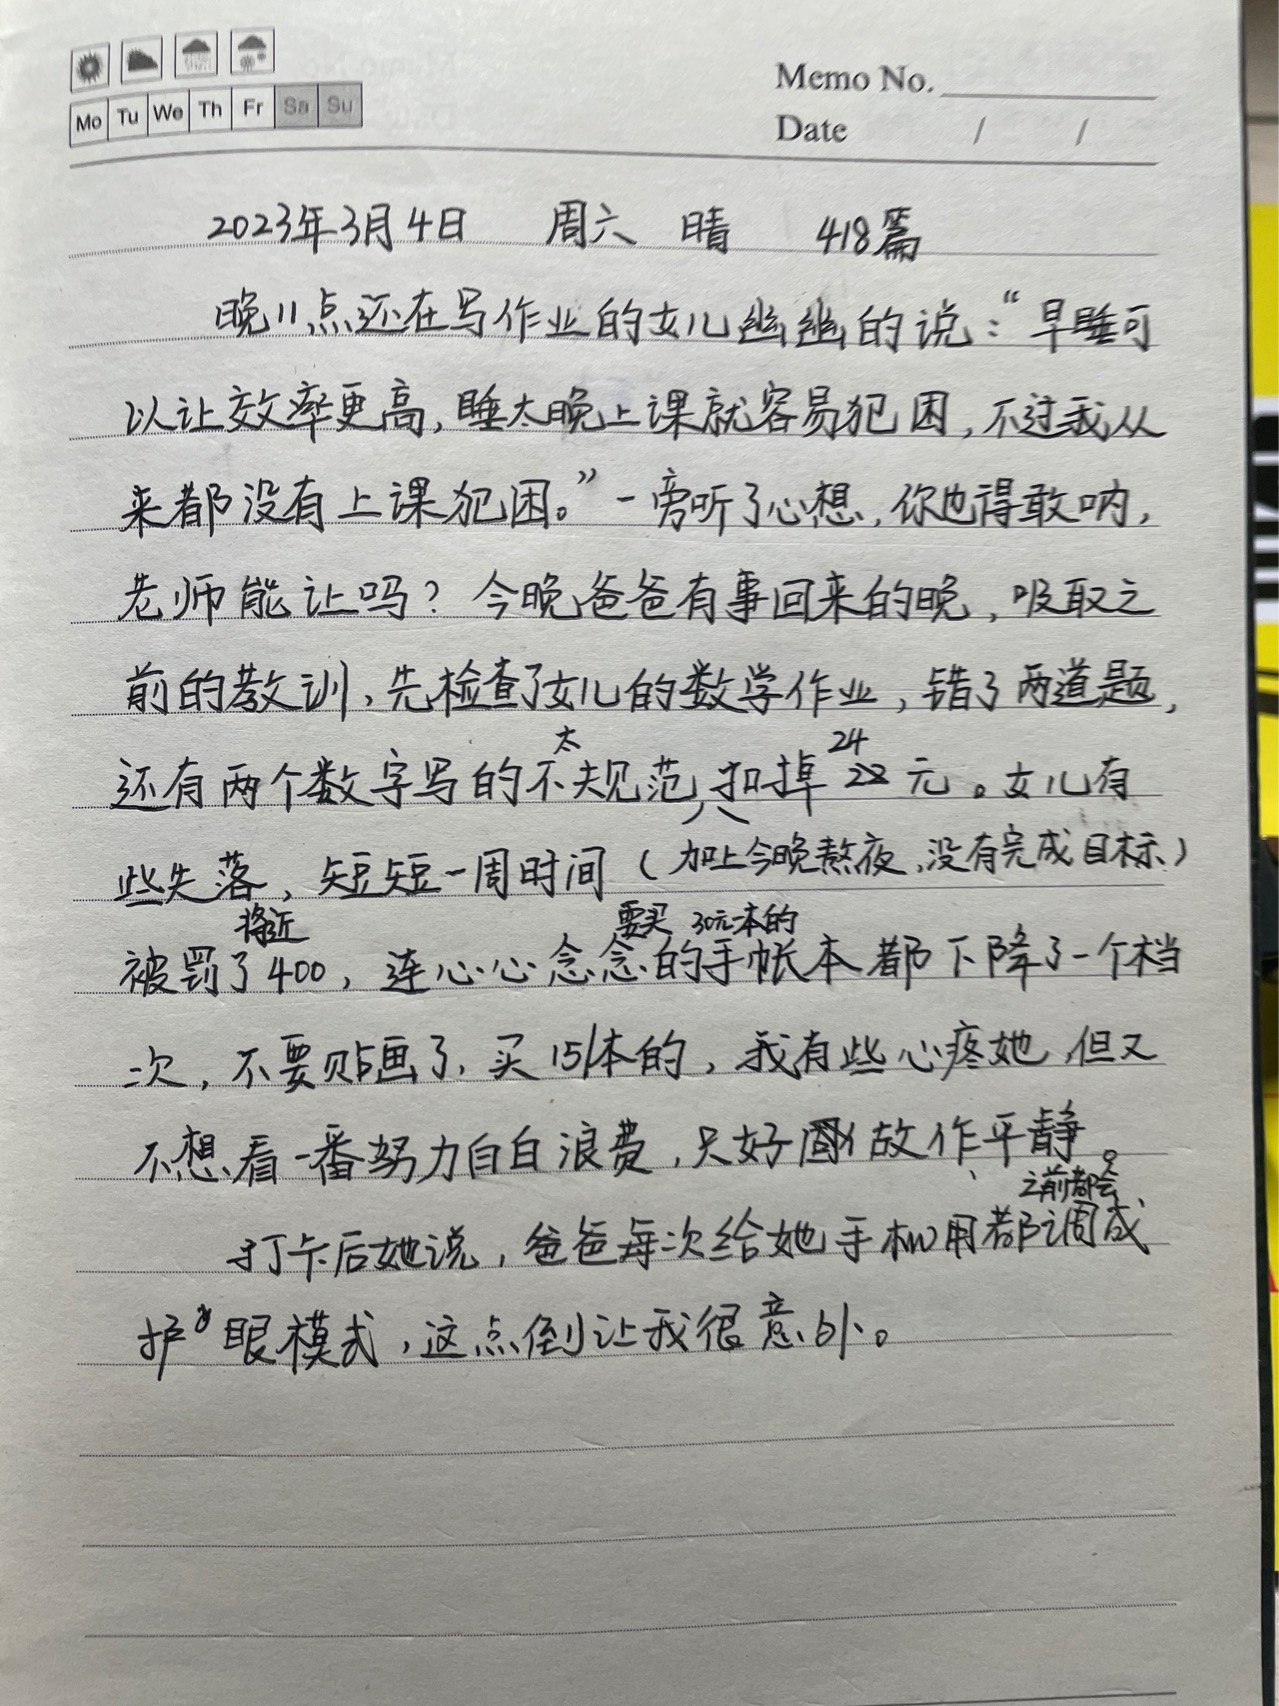 Mo Tu We Th Fr Sa Su
Memo No.
Date / /
2023年3月4日 周六 晴 418篇
晚11点还在写作业的女儿幽幽的说：“早睡可
以让效率更高，睡太晚上课就容易犯困，不过我从
来都没有上课犯困。”一旁听了心想，你也得敢呐，
老师能让吗？今晚爸爸有事回来的晚，吸取之
前的教训，先检查了女儿的数学作业，错了两道题，
还有两个数字写的不太规范，扣掉24元。女儿有
些失落，短短一周时间（加上今晚熬夜，没有完成目标）
被罚了将近400，连心心念念要买30元本的手帐本都下降了一个档
次，不要贴画了，买15/本的，我有些心疼她，但又
不想看一番努力白白浪费，只好故作平静。
打卡后她说，爸爸每次给她手机用之前都会调成
护眼模式，这点倒让我很意外。